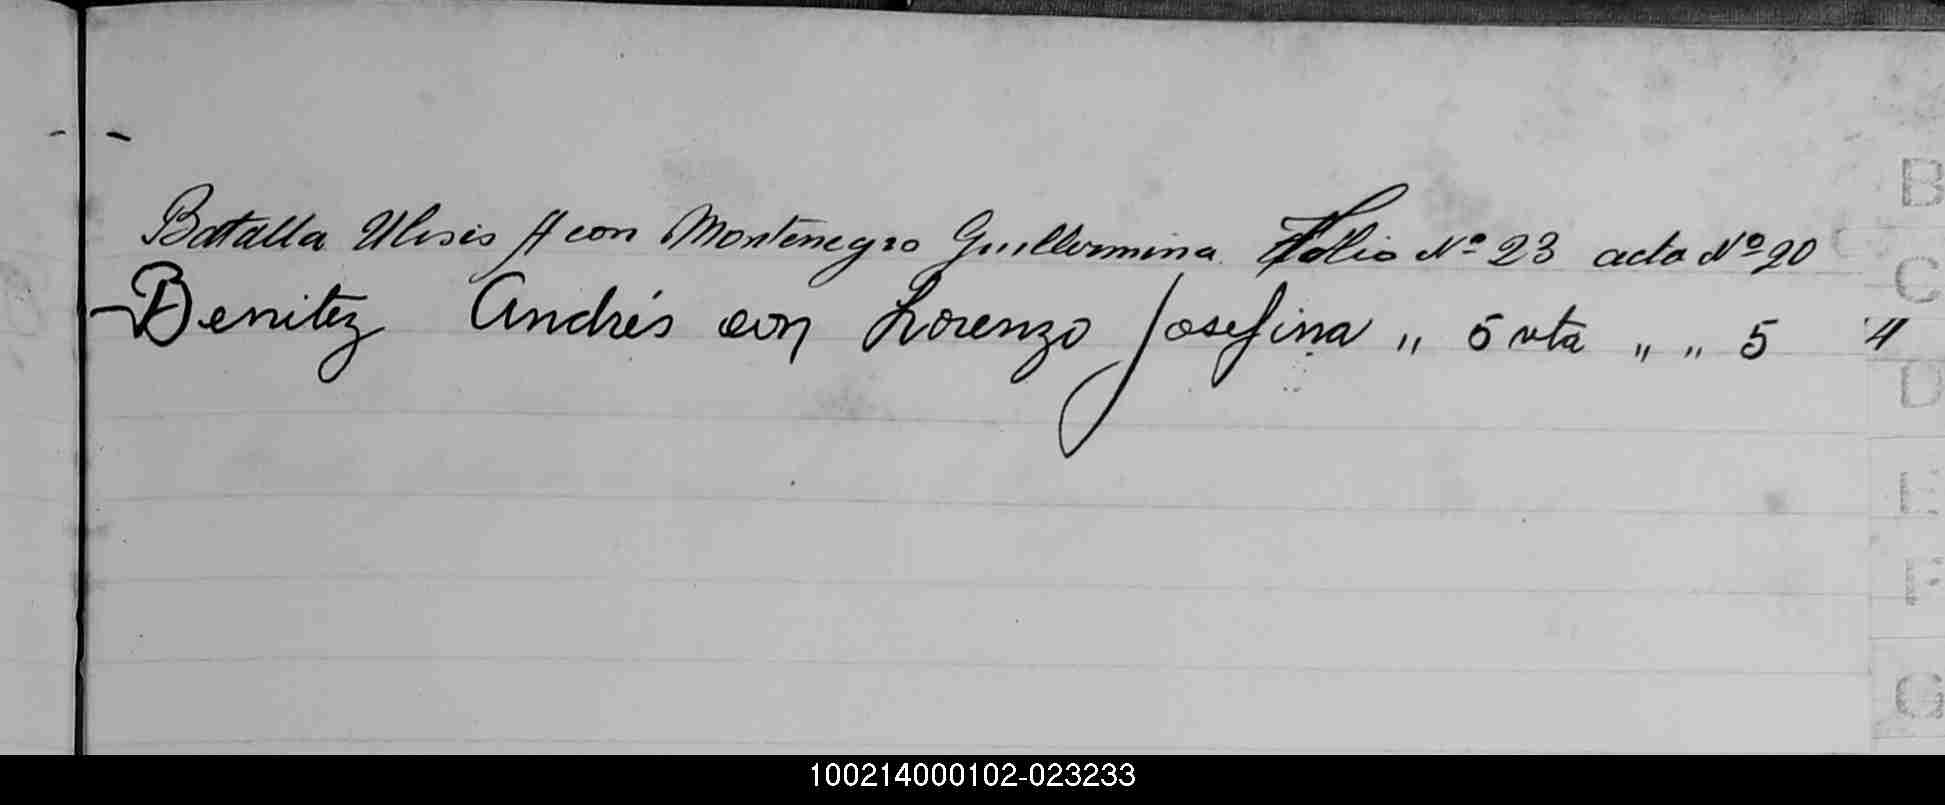 Batalla Ulisis A con Montenegro Guillermina Folio Nº 23 acta Nº 20
Benitez Andrés con Lorenzo Josefina „ 5 vta „ „ 5
B
C
D
E
F
G
100214000102-023233